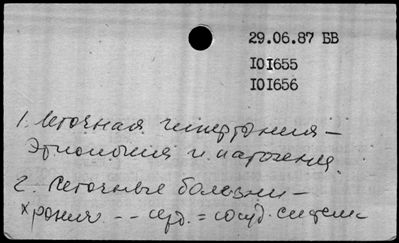 29.06.87 ББ
I0I655
I0I656
1. Легочная гипертония –
Этиология и патогенез.
2. Легочные болезни –
хронич -- серд.=сосуд. систем